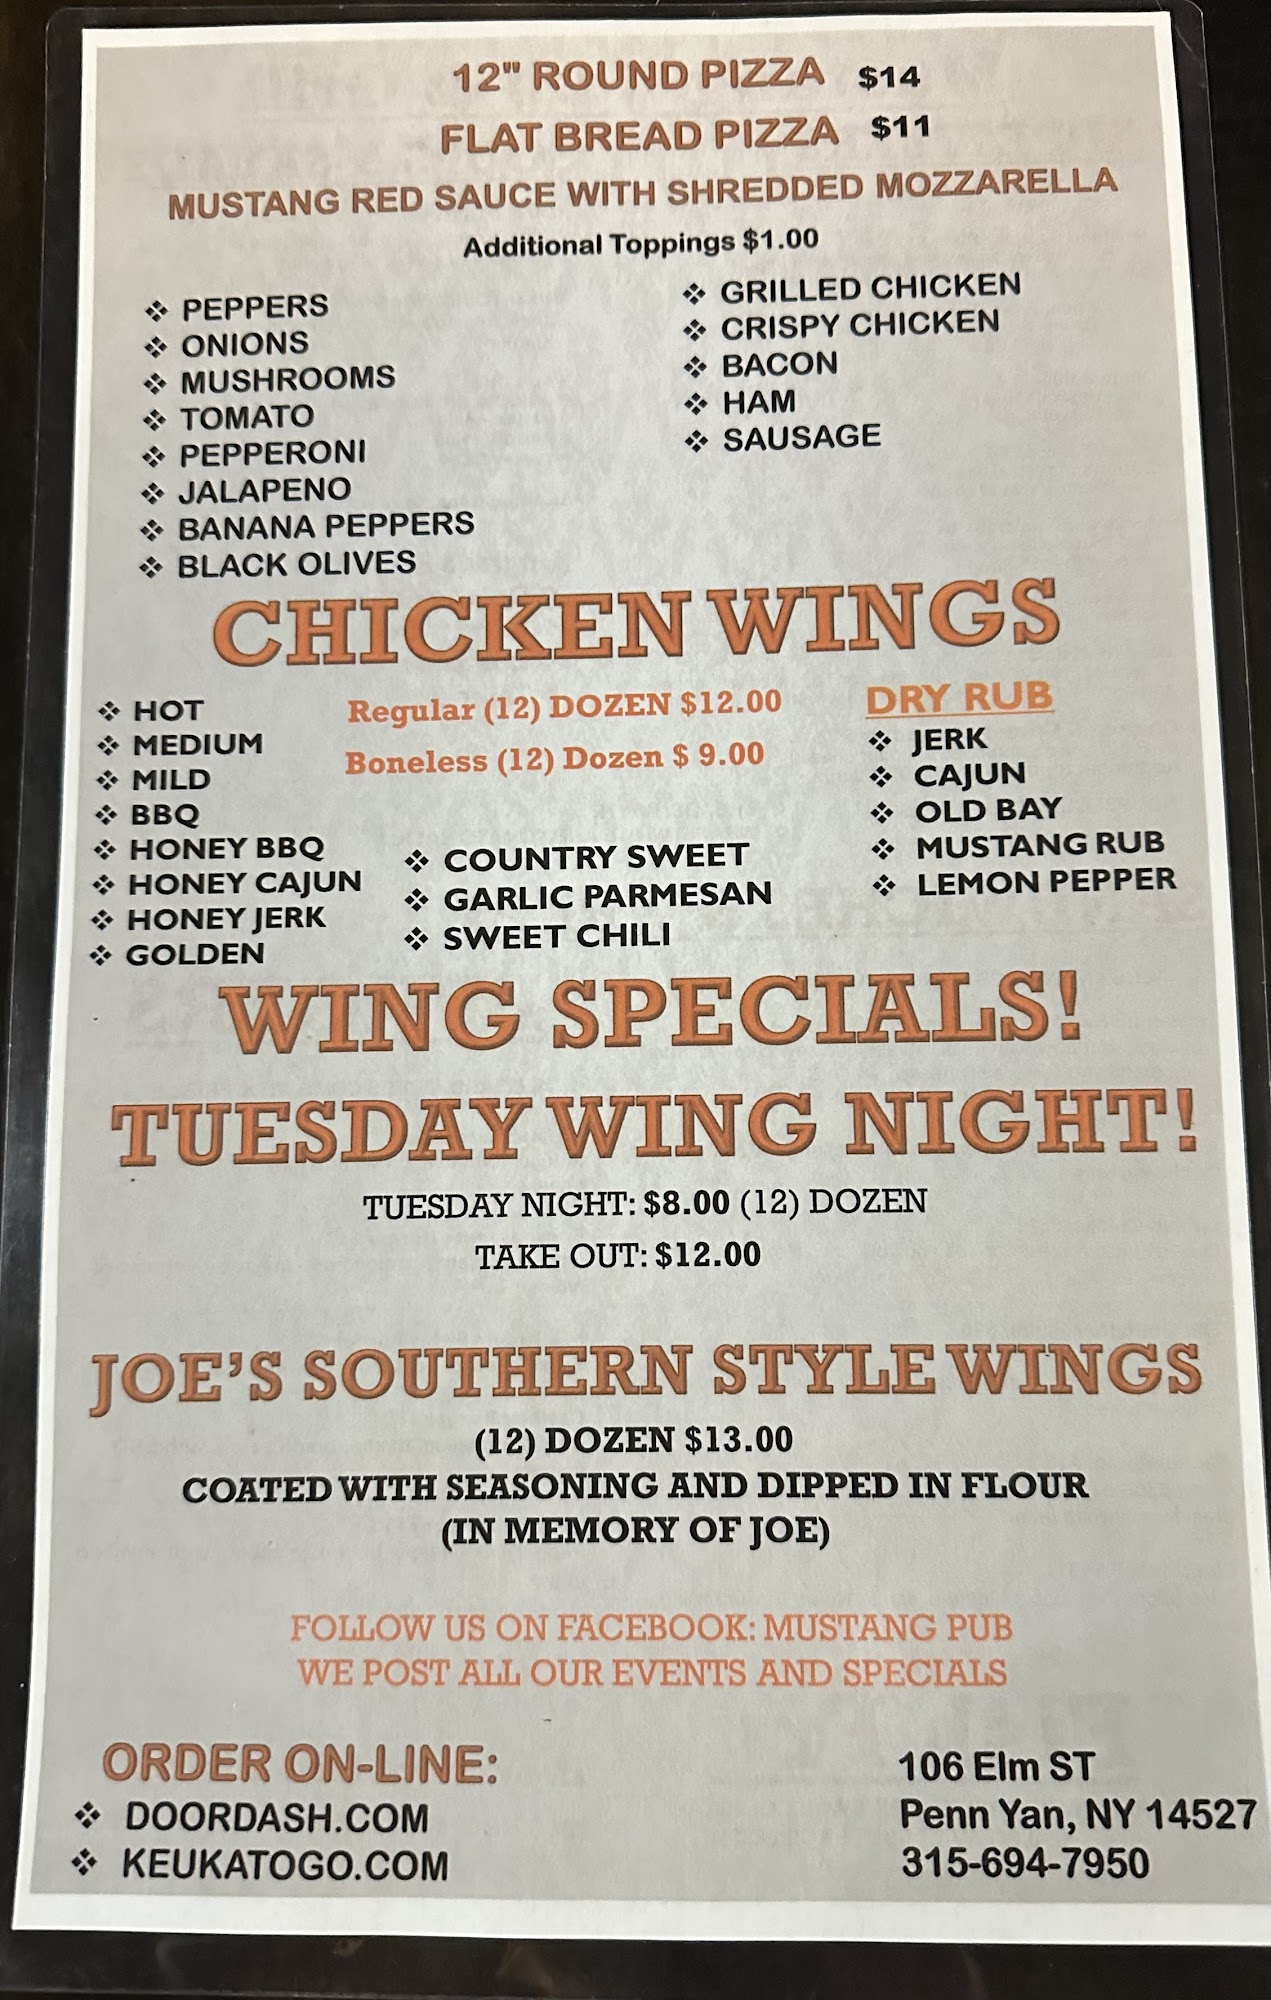 12"' ROUND PIZZA $14
FLAT BREAD PIZZA $11
MUSTANG RED SAUCE WITH SHREDDED MOZZARELLA
Additional Toppings $1.00
❖ PEPPERS
❖ ONIONS
❖ MUSHROOMS
❖ TOMATO
❖ PEPPERONI
❖ JALAPENO
❖ BANANA PEPPERS
❖ BLACK OLIVES
❖ GRILLED CHICKEN
❖ CRISPY CHICKEN
❖ BACON
❖ HAM
❖ SAUSAGE
CHICKEN WINGS
❖ HOT
❖ MEDIUM
❖ MILD
❖ BBQ
❖ HONEY BBQ
❖ HONEY CAJUN
❖ HONEY JERK
❖ GOLDEN
Regular (12) DOZEN $12.00
Boneless (12) Dozen $ 9.00
❖ COUNTRY SWEET
❖ GARLIC PARMESAN
❖ SWEET CHILI
DRY RUB
❖ JERK
❖ CAJUN
❖ OLD BAY
❖ MUSTANG RUB
❖ LEMON PEPPER
WING SPECIALS!
TUESDAY WING NIGHT!
TUESDAY NIGHT: $8.00 (12) DOZEN
TAKE OUT: $12.00
JOE'S SOUTHERN STYLE WINGS
(12) DOZEN $13.00
COATED WITH SEASONING AND DIPPED IN FLOUR
(IN MEMORY OF JOE)
FOLLOW US ON FACEBOOK: MUSTANG PUB
WE POST ALL OUR EVENTS AND SPECIALS
ORDER ON-LINE:
❖ DOORDASH.COM
❖ KEUKATOGO.COM
106 Elm ST
Penn Yan, NY 14527
315-694-7950